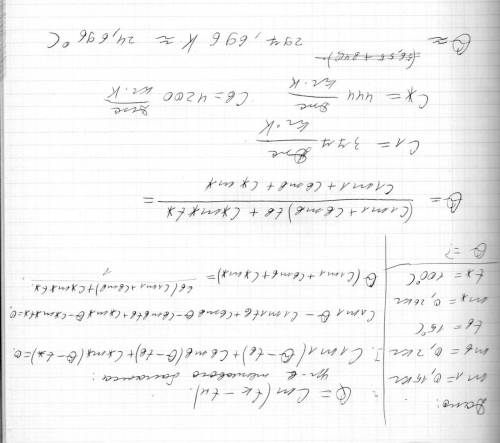 Дано:
m1 = 0,15кг
mв = 0,2кг
tв = 15°C
mx = 0,26кг
tx = 100°C
θ = ?
Q = Cm(tк - tн).
ур-е теплового баланса:
C1m1(θ-tв) + Cвmв(θ-tв) + Cxmx(θ-tx) = 0;
C1m1θ - C1m1tв + Cвmвθ - Cвmвtв + Cxmxθ - Cxmxtx = 0
θ(C1m1 + Cвmв + Cxmx) = tв(C1m1 + Cвmв) + Cxmxtx
θ = (C1m1 + Cвmв)tв + Cxmxtx / C1m1 + Cвmв + Cxmx =
C1 = 377 Дж/кг·K
Cx = 444 Дж/кг·K Cв = 4200 Дж/кг·K
(56,55 + 840)
θ ≈ 297,696 K ≈ 24,696 °C